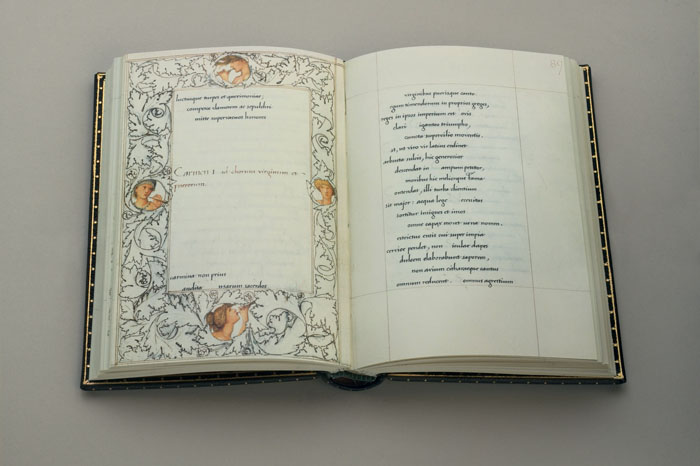 luctusque turpes et querimoniae;
compesce clamorem ac sepulchri
mitte supervacuos honores
Carmen I. ad chorum virginum et
puerorum.
carmina non prius
audita sacerdos
virginibus puerisque canto.
egum timendorum in proprios greges,
reges in ipsos imperium est ovis
clari iganteo triumpho,
cuncta supercilio moventis.
st, ut viro vir latius ordinet
arbusta sulcis, hic generosior
descendat in ampum petitor,
moribus hic meliorque fama
contendat, illi turba clientium
sit major: aequa lege ecessitas
sortitur insignes et imos
omne capax movet urna nomen.
estrictus ensis cui super impia
cervice pendet, non iculae dapes
dulcem elaborabunt saporem,
non avium citharaeque cantus
somnum reducent. omnus agrestium